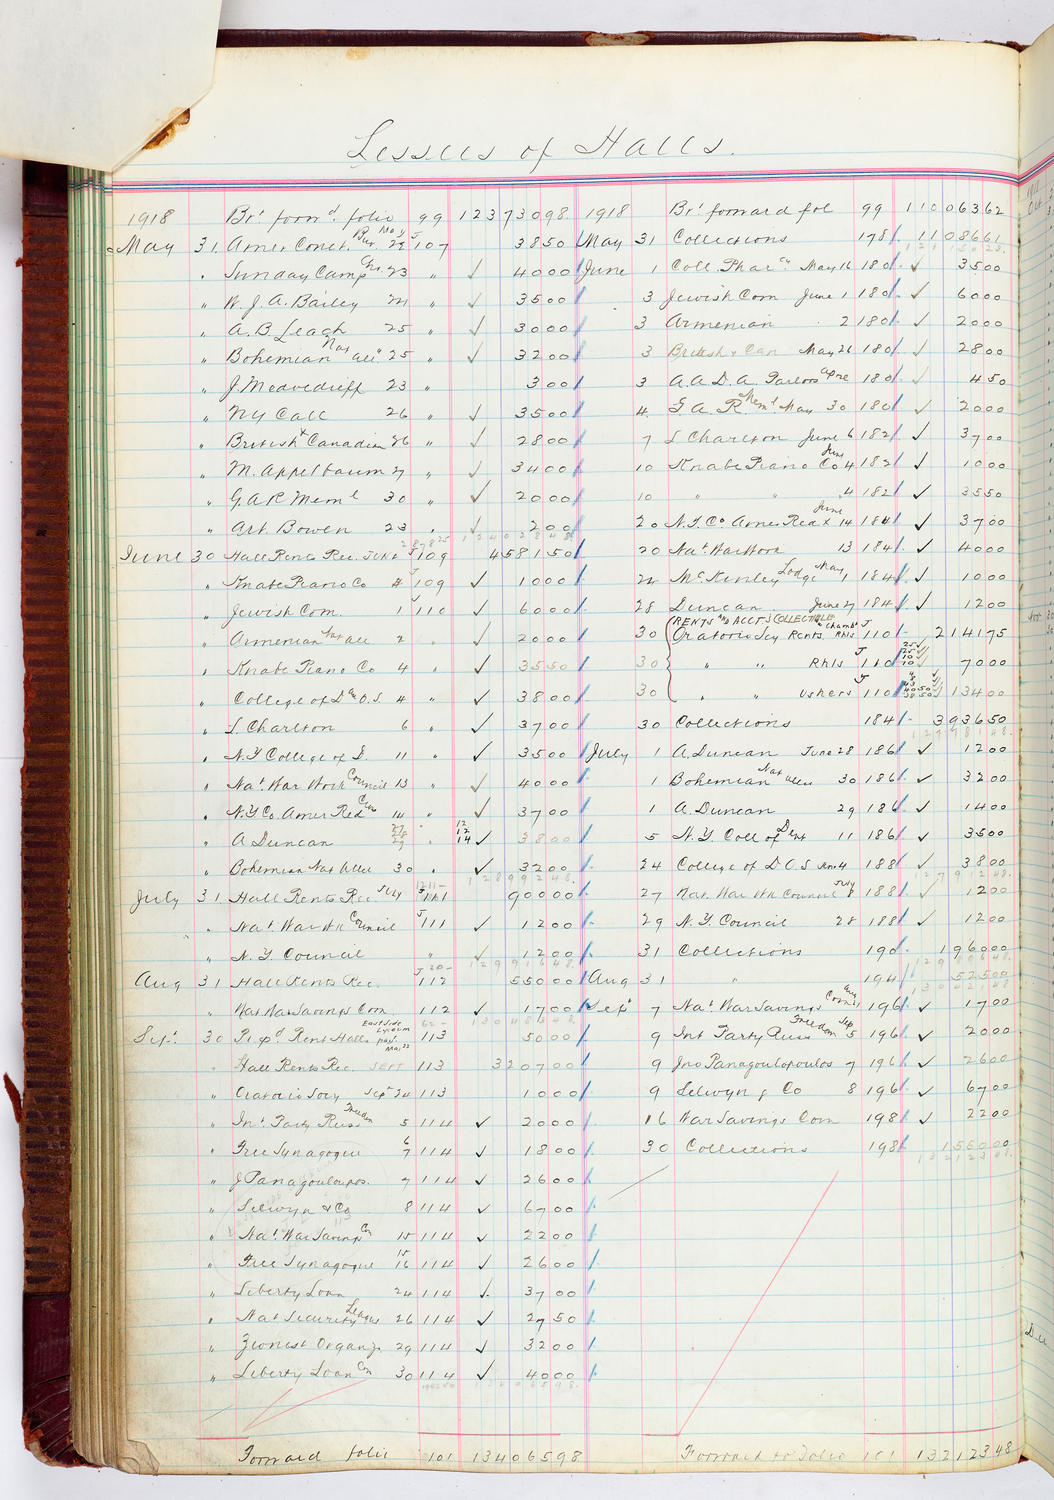 Lessees of Halls.
1918 Brt forwd. folio 99 12373098
May 31 Amer Conct Bur. May 22 J107 3850
" Sunday Camp Chs. 23 " ✓ 4000
" W. J. A. Bailey 24 " ✓ 3500
" A. B Leach 25 " ✓ 3000
" Bohemian Nat Alle 25 " ✓ 3200
" J. Medvedieff 23 " 300
" NY Call 26 " ✓ 3500
" British & Canadian 26 " ✓ 2800
" M. Appelbaum 27 " ✓ 3400
" G. A R Meml 30 " ✓ 2000
" Art. Bowen 23 " ✓ 200
June 30 Hall Rents Rec. June J109 458150
" Knabe Piano Co 4 J109 ✓ 1000
" Jewish Com. 1 J110 ✓ 6000
" Armenian 2 ✓ 2000
" Knabe Piano Co 4 " ✓ 3550
" College of D & O.S. 4 " ✓ 3800
" L. Charlton 6 " ✓ 3700
" N.Y College of D. 11 " ✓ 3500
" Nat. War Work Council 13 " ✓ 4000
" N.Y Co. Amer Red Cross 14 " ✓ 3700
" A Duncan 27 28 29 " 12 12 14 ✓ 3800
" Bohemian Nat Alle 30 " ✓ 3200
July 31 Hall Rents Rec July J111 90000
" Nat. War Wk Council J111 ✓ 1200
" N. Y Council " ✓ 1200
Aug 31 Hall Rents Rec. J112 55000
" Nat War Savings Com 112 ✓ 1700
Sept. 30 Repd. Rent Halls East Side Lyceum 113 5000
" Hall Rents Rec. SEPT 113 320700
" Oratorio Socy Sept 24 113 1000
" Int. Party Russ Freedom 5 114 ✓ 2000
" Free Synagogue 6 7 114 ✓ 1800
" J Panagoulopos. 7 114 ✓ 2600
" Selwyn & Co 8 114 ✓ 6700
" Nat. War Savings Co 15 114 ✓ 2200
" Free Synagogue 15 16 114 ✓ 2600
" Liberty Loan 24 114 ✓ 3700
" Nat Security League 26 114 ✓ 2750
" Zionist Organz. 29 114 ✓ 3200
" Liberty Loan Com 30 114 ✓ 4000
Forward folio 101 13406598
1918 Brt forward fol 99 11006362
May 31 Collections 178 1108661
June 1 Coll. Pharcy May 16 180 ✓ 3500
3 Jewish Com June 1 180 ✓ 6000
3 Armenian 2 180 ✓ 2000
3 British & Can May 26 180 ✓ 2800
3 A. A. D. A. Parlors Apre 180 ✓ 450
4 G. A. R Meml May 30 180 ✓ 2000
7 L Charlton June 6 182 ✓ 3700
10 Knabe Piano Co June 4 182 ✓ 1000
10 " " 4 182 ✓ 3550
20 N.Y. Co. Amer Red X June 14 184 ✓ 3700
20 Nat. War Work 13 184 ✓ 4000
22 McKinley Lodge May 1 184 ✓ 1000
28 Duncan June 27 184 ✓ 1200
(RENTS AND ACCTS COLLECTIBLE
30 Oratorio Socy Rents " Chamb " Rhls J110 214175
30 " " Rhls J110 7000
30 " " Ushers J110 13400
30 Collections 184 393650
July 1 A. Duncan June 28 186 ✓ 1200
1 Bohemian Nat Allce 30 186 ✓ 3200
1 A. Duncan 29 186 ✓ 1400
5 N. Y. Coll of Dent 11 186 ✓ 3500
24 College of D. O. S Jun 4 188 ✓ 3800
27 Nat. War Wk Council July 8 188 ✓ 1200
29 N. Y. Council 28 188 ✓ 1200
31 Collections 190 196000
Aug 31 " 194 52500
Sept 7 Nat. War Savings Com Aug 196 ✓ 1700
9 Int Party Russ Freedom Sep 5 196 ✓ 2000
9 Jno Panagoulopoulos 7 196 ✓ 2600
9 Selwyn & Co 8 196 ✓ 6700
16 War Savings Com 198 ✓ 2200
30 Collections 198 155000
Forward to Folio 101 13212348